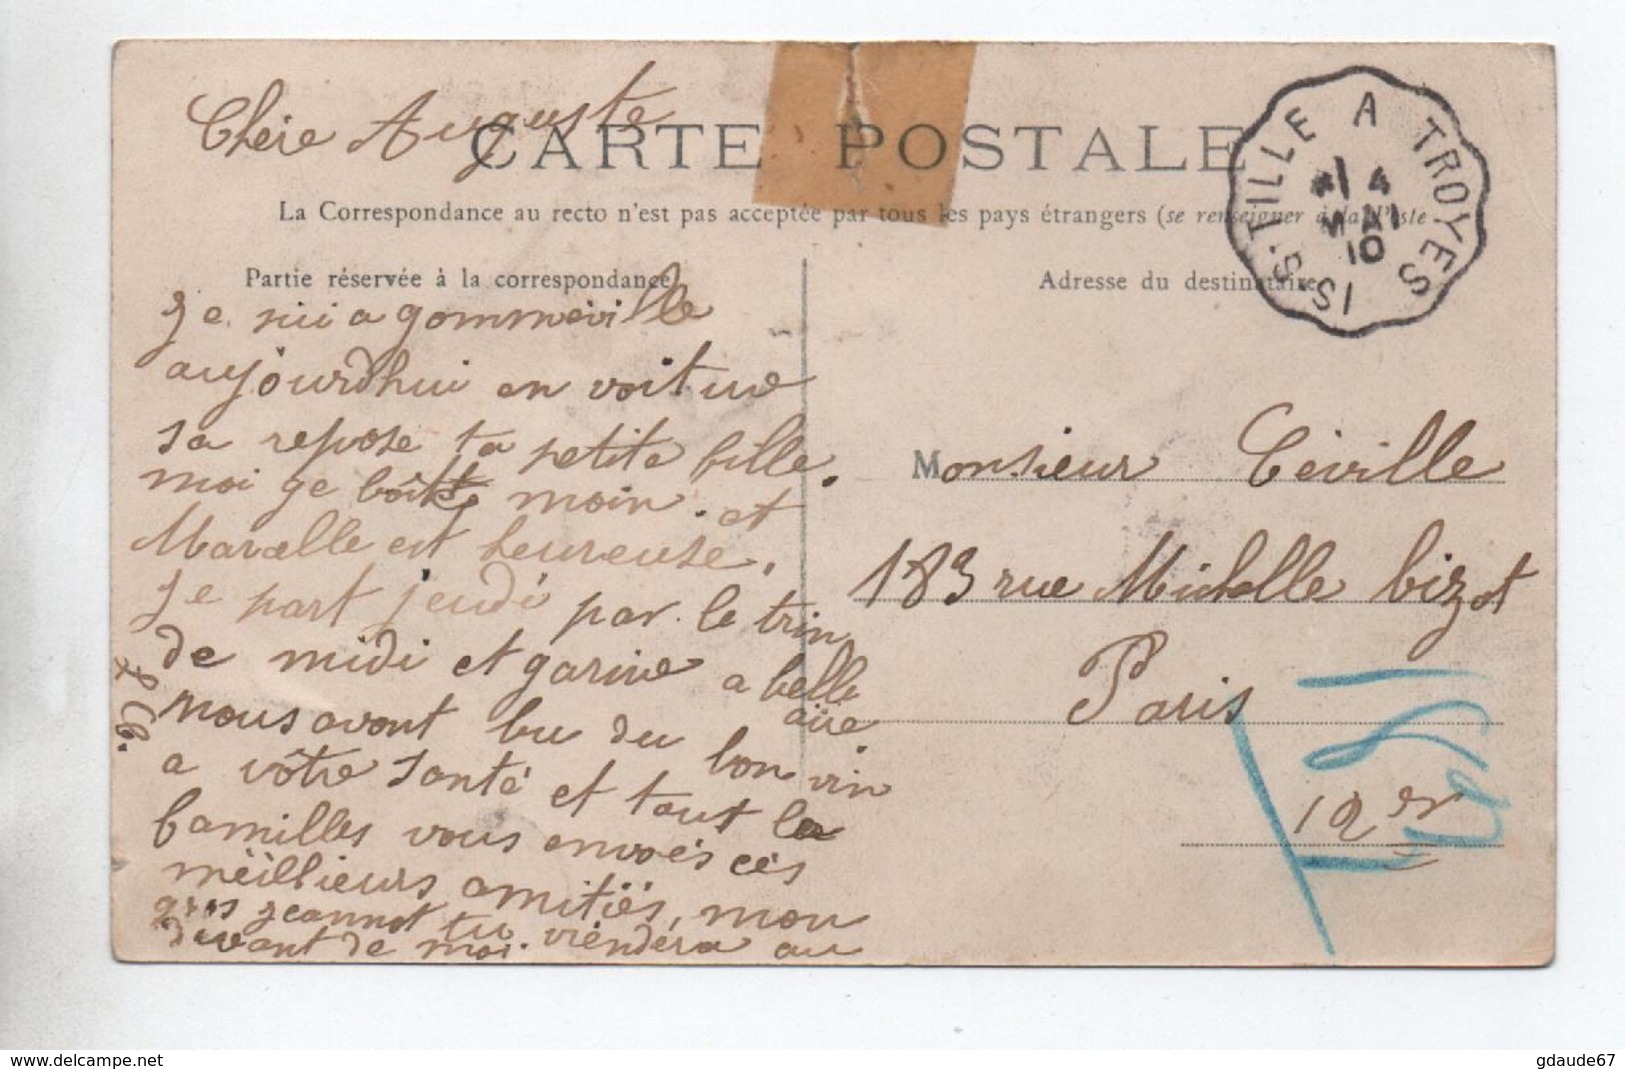 Chère Auguste
CARTE POSTALE
La Correspondance au recto n'est pas acceptée par tous les pays étrangers (se renseigner à la Poste
Partie réservée à la correspondance
Adresse du destinataire
IS.S.TILLE A TROYES
4
MAI
10
Je sui a gommévillle
aujourdhui en voiture
sa repose ta petite fille.
moi je boite moin. et
Marcelle est heureuse.
Je part jeudi par le trin
de midi et garive a belle
aire.
nous avont bu du bon vin
a vôtre santé et tout la
familles vous envoés cés
méillieurs amitiés, mon
gros jeannot tu viendéra au
devant de moi.
Monsieur Céville
183 rue Michelle bizot
Paris
12er
www.delcampe.net
gdaude67